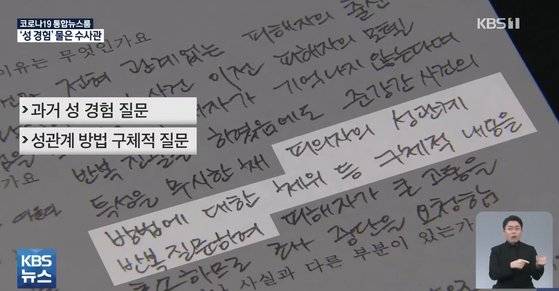 코로나19 통합뉴스룸
'성 경험' 물은 수사관
KBS 1
이유는 무엇인가요
전혀 관계없는 피해자의 출산
사건 이전 피해자의 모텔
기억나지 않는다며
> 과거 성 경험 질문
반복 질문 하였음에도 준강간 사건의
> 성관계 방법 구체적 질문
특성을 무시한 채 피의자의 성관계
방법에 대한 체위 등 구체적 내용을
반복 질문하여 피해자가 큰 고통을
호소하므로 조사 중단을 요청함
사실과 다른 부분이 있는가
KBS
뉴스